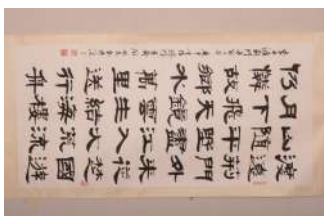 渡遠荊門外來從楚國遊
山隨平野盡江入大荒流
月下飛天鏡雲生結海樓
仍憐故鄉水萬里送行舟